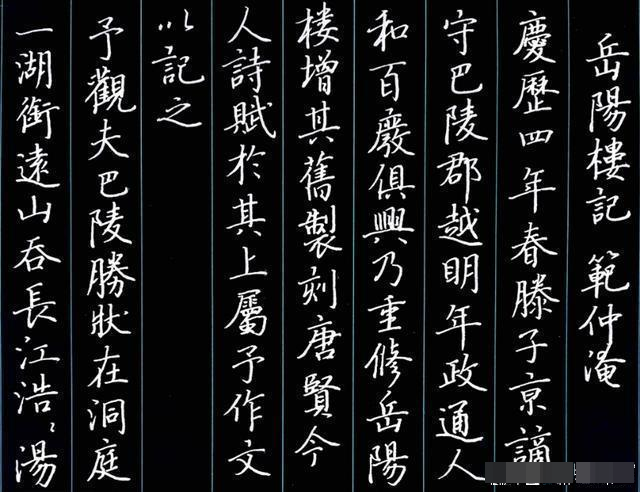 岳陽樓記 範仲淹
慶歷四年春滕子京謫
守巴陵郡越明年政通人
和百廢俱興乃重修岳陽
楼增其舊製刻唐賢今
人詩賦於其上屬予作文
以記之
予觀夫巴陵勝狀在洞庭
一湖銜遠山吞長江浩〻湯